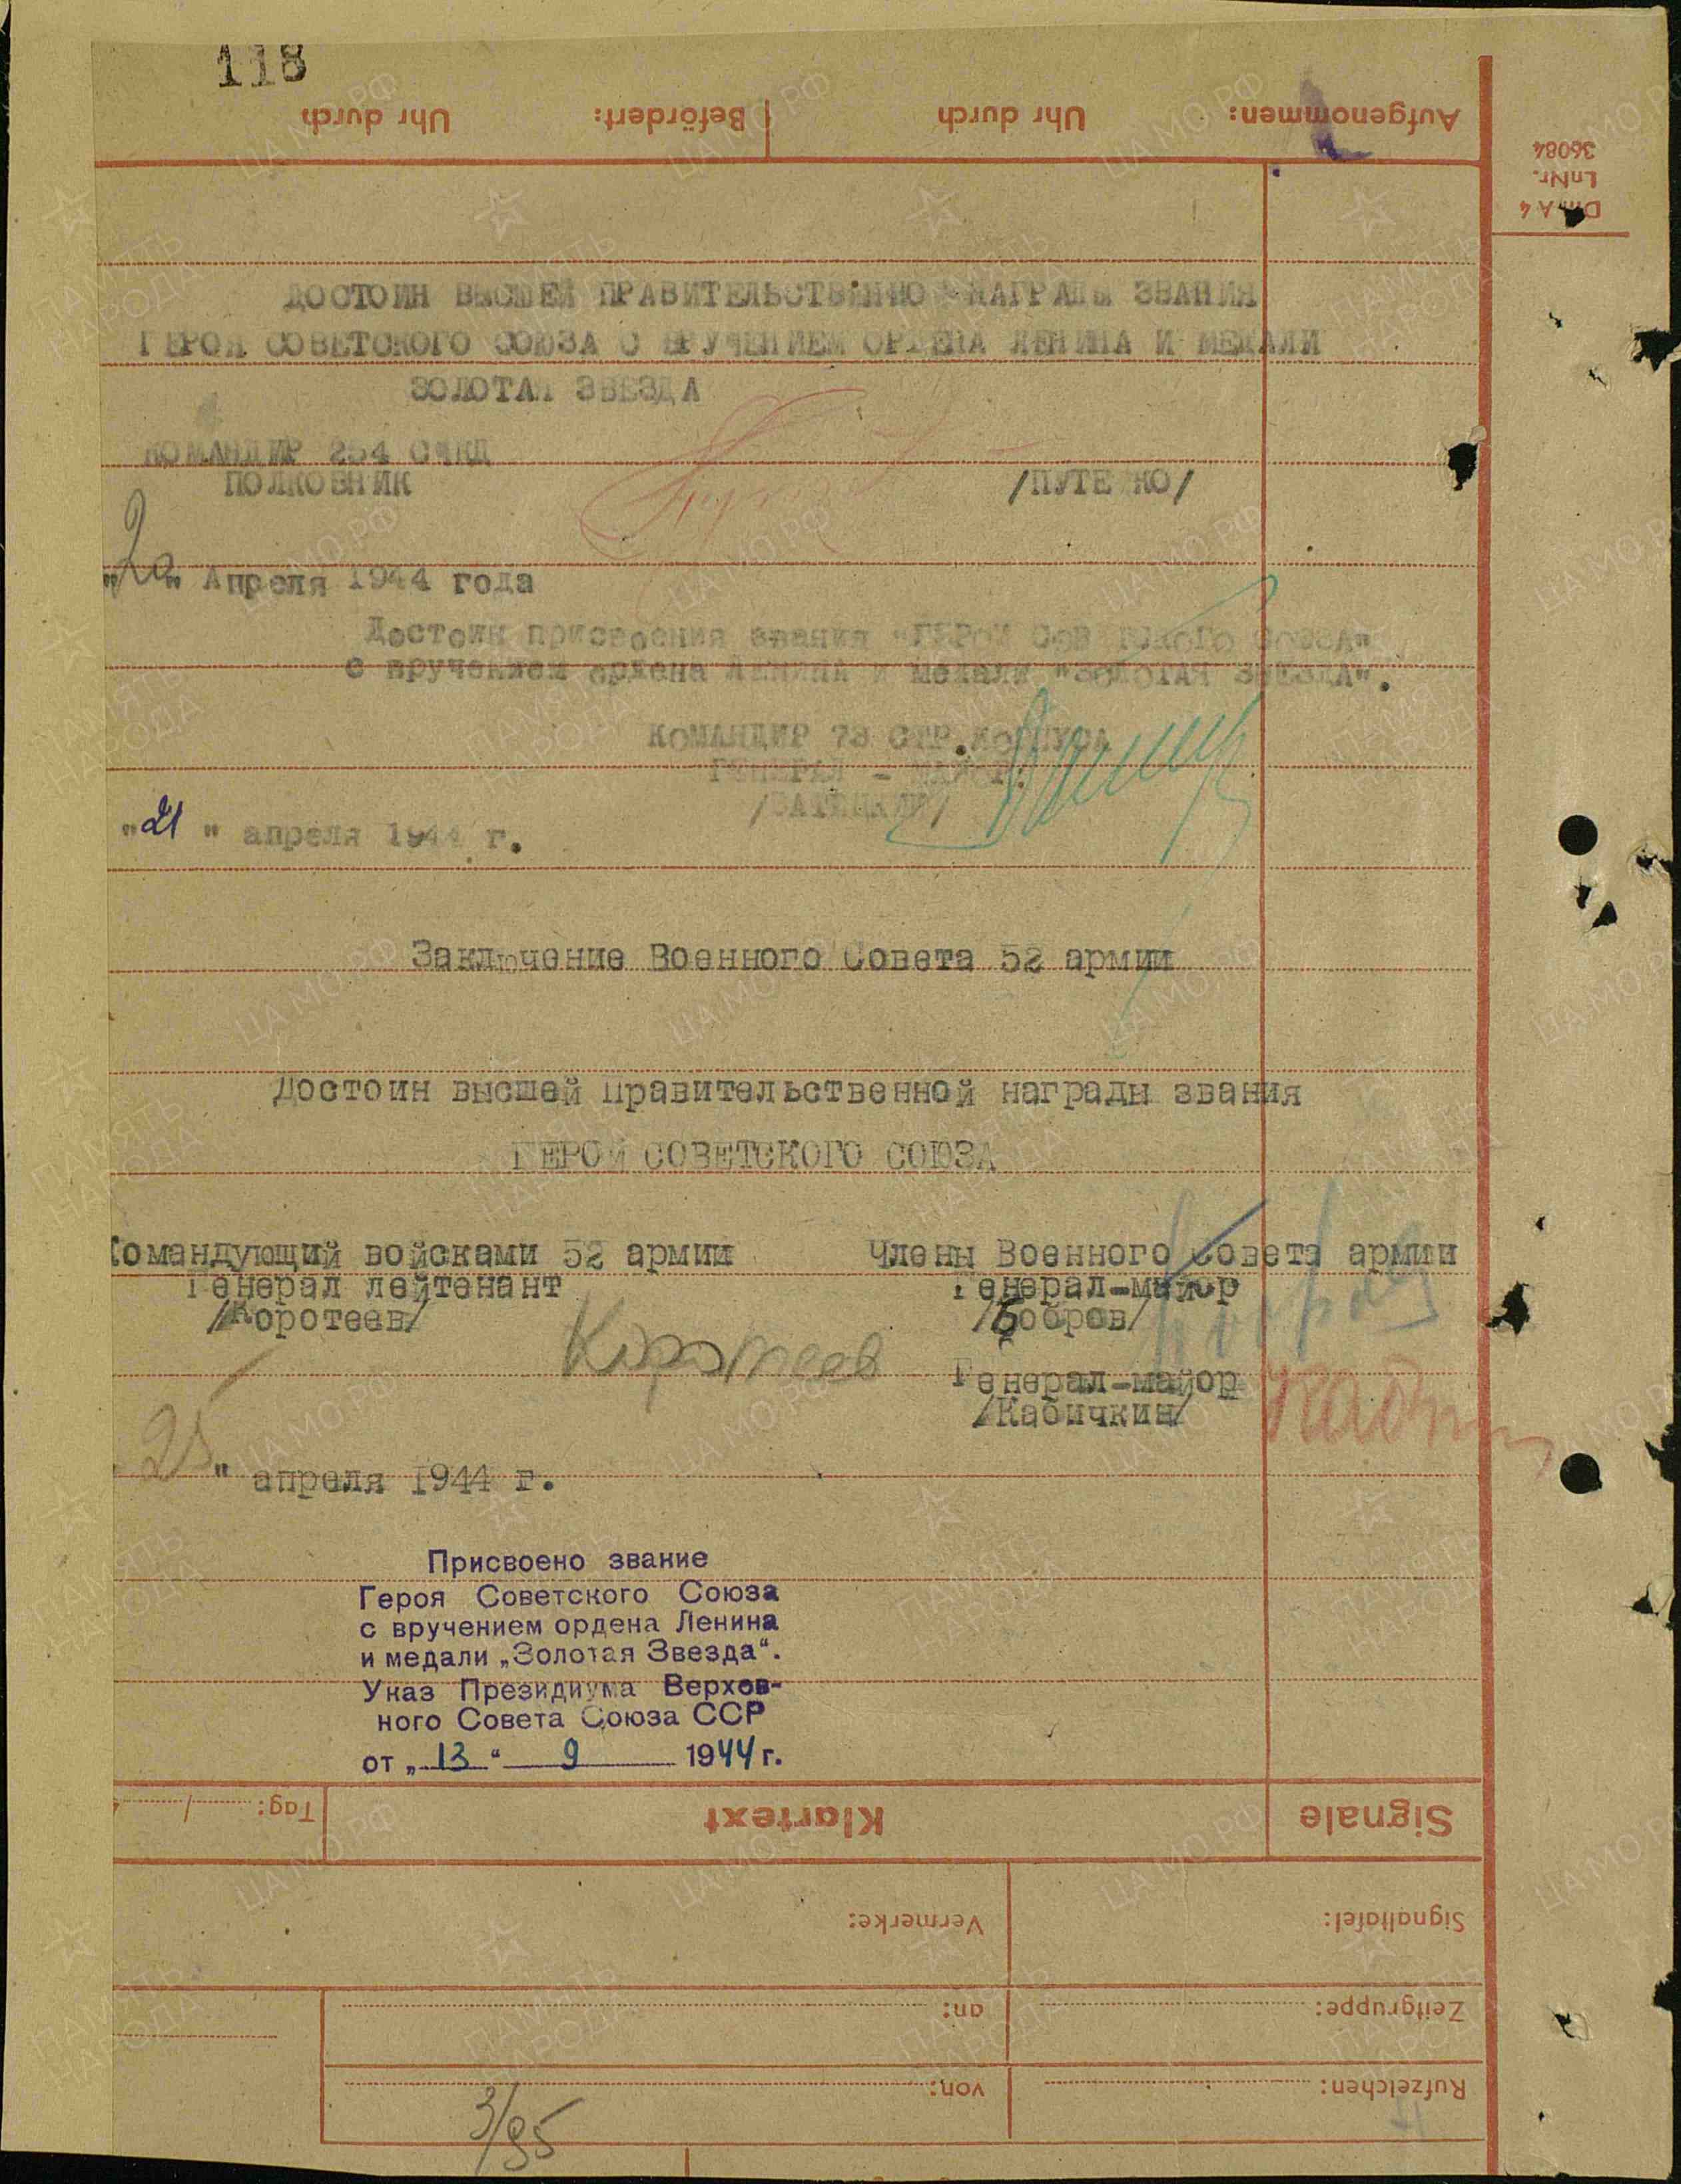 118
Aufgenommen: Uhr durch Befördert: Uhr durch
36084
LnNr.
Din A 4
ДОСТОИН ВЫСШЕЙ ПРАВИТЕЛЬСТВЕННО НАГРАДЫ ЗВАНИЯ
ГЕРОЯ СОВЕТСКОГО СОЮЗА С ВРУЧЕНИЕМ ОРДЕНА ЛЕНИНА И МЕДАЛИ
ЗОЛОТАЯ ЗВЕЗДА
КОМАНДИР 254 СЧКД
ПОЛКОВНИК /ПУТЕ КО/
"20" Апреля 1944 года
Достоин присвоения звания "ГЕРОЙ СОВ ТСКОГО СОЮЗА"
с вручением ордена ЛЕНИНА и медали "ЗОЛОТАЯ ЗВЕЗДА".
КОМАНДИР 73 СТР.КОРПУСА
ГЕНЕРАЛ - МАЙОР:
/БАТИЦКИЙ/
"21" апреля 1944 г.
Заключение Военного Совета 52 армии
Достоин высшей Правительственной награды звания
ГЕРОЙ СОВЕТСКОГО СОЮЗА
Командующий войсками 52 армии Члены Военного Совета армии
Генерал лейтенант Генерал-майор
/Коротеев/ /Бобров/
Коротеев
Генерал-майор
/Кабичкин/
"25" апреля 1944 г.
Присвоено звание
Героя Советского Союза
с вручением ордена Ленина
и медали „Золотая Звезда“.
Указ Президиума Верхов-
ного Совета Союза ССР
от „13“ 9 1944 г.
Tag: Klartext Signale
Vermerke: Signaltafel:
an: Zeitgruppe:
von: Rufzeichen:
3/95